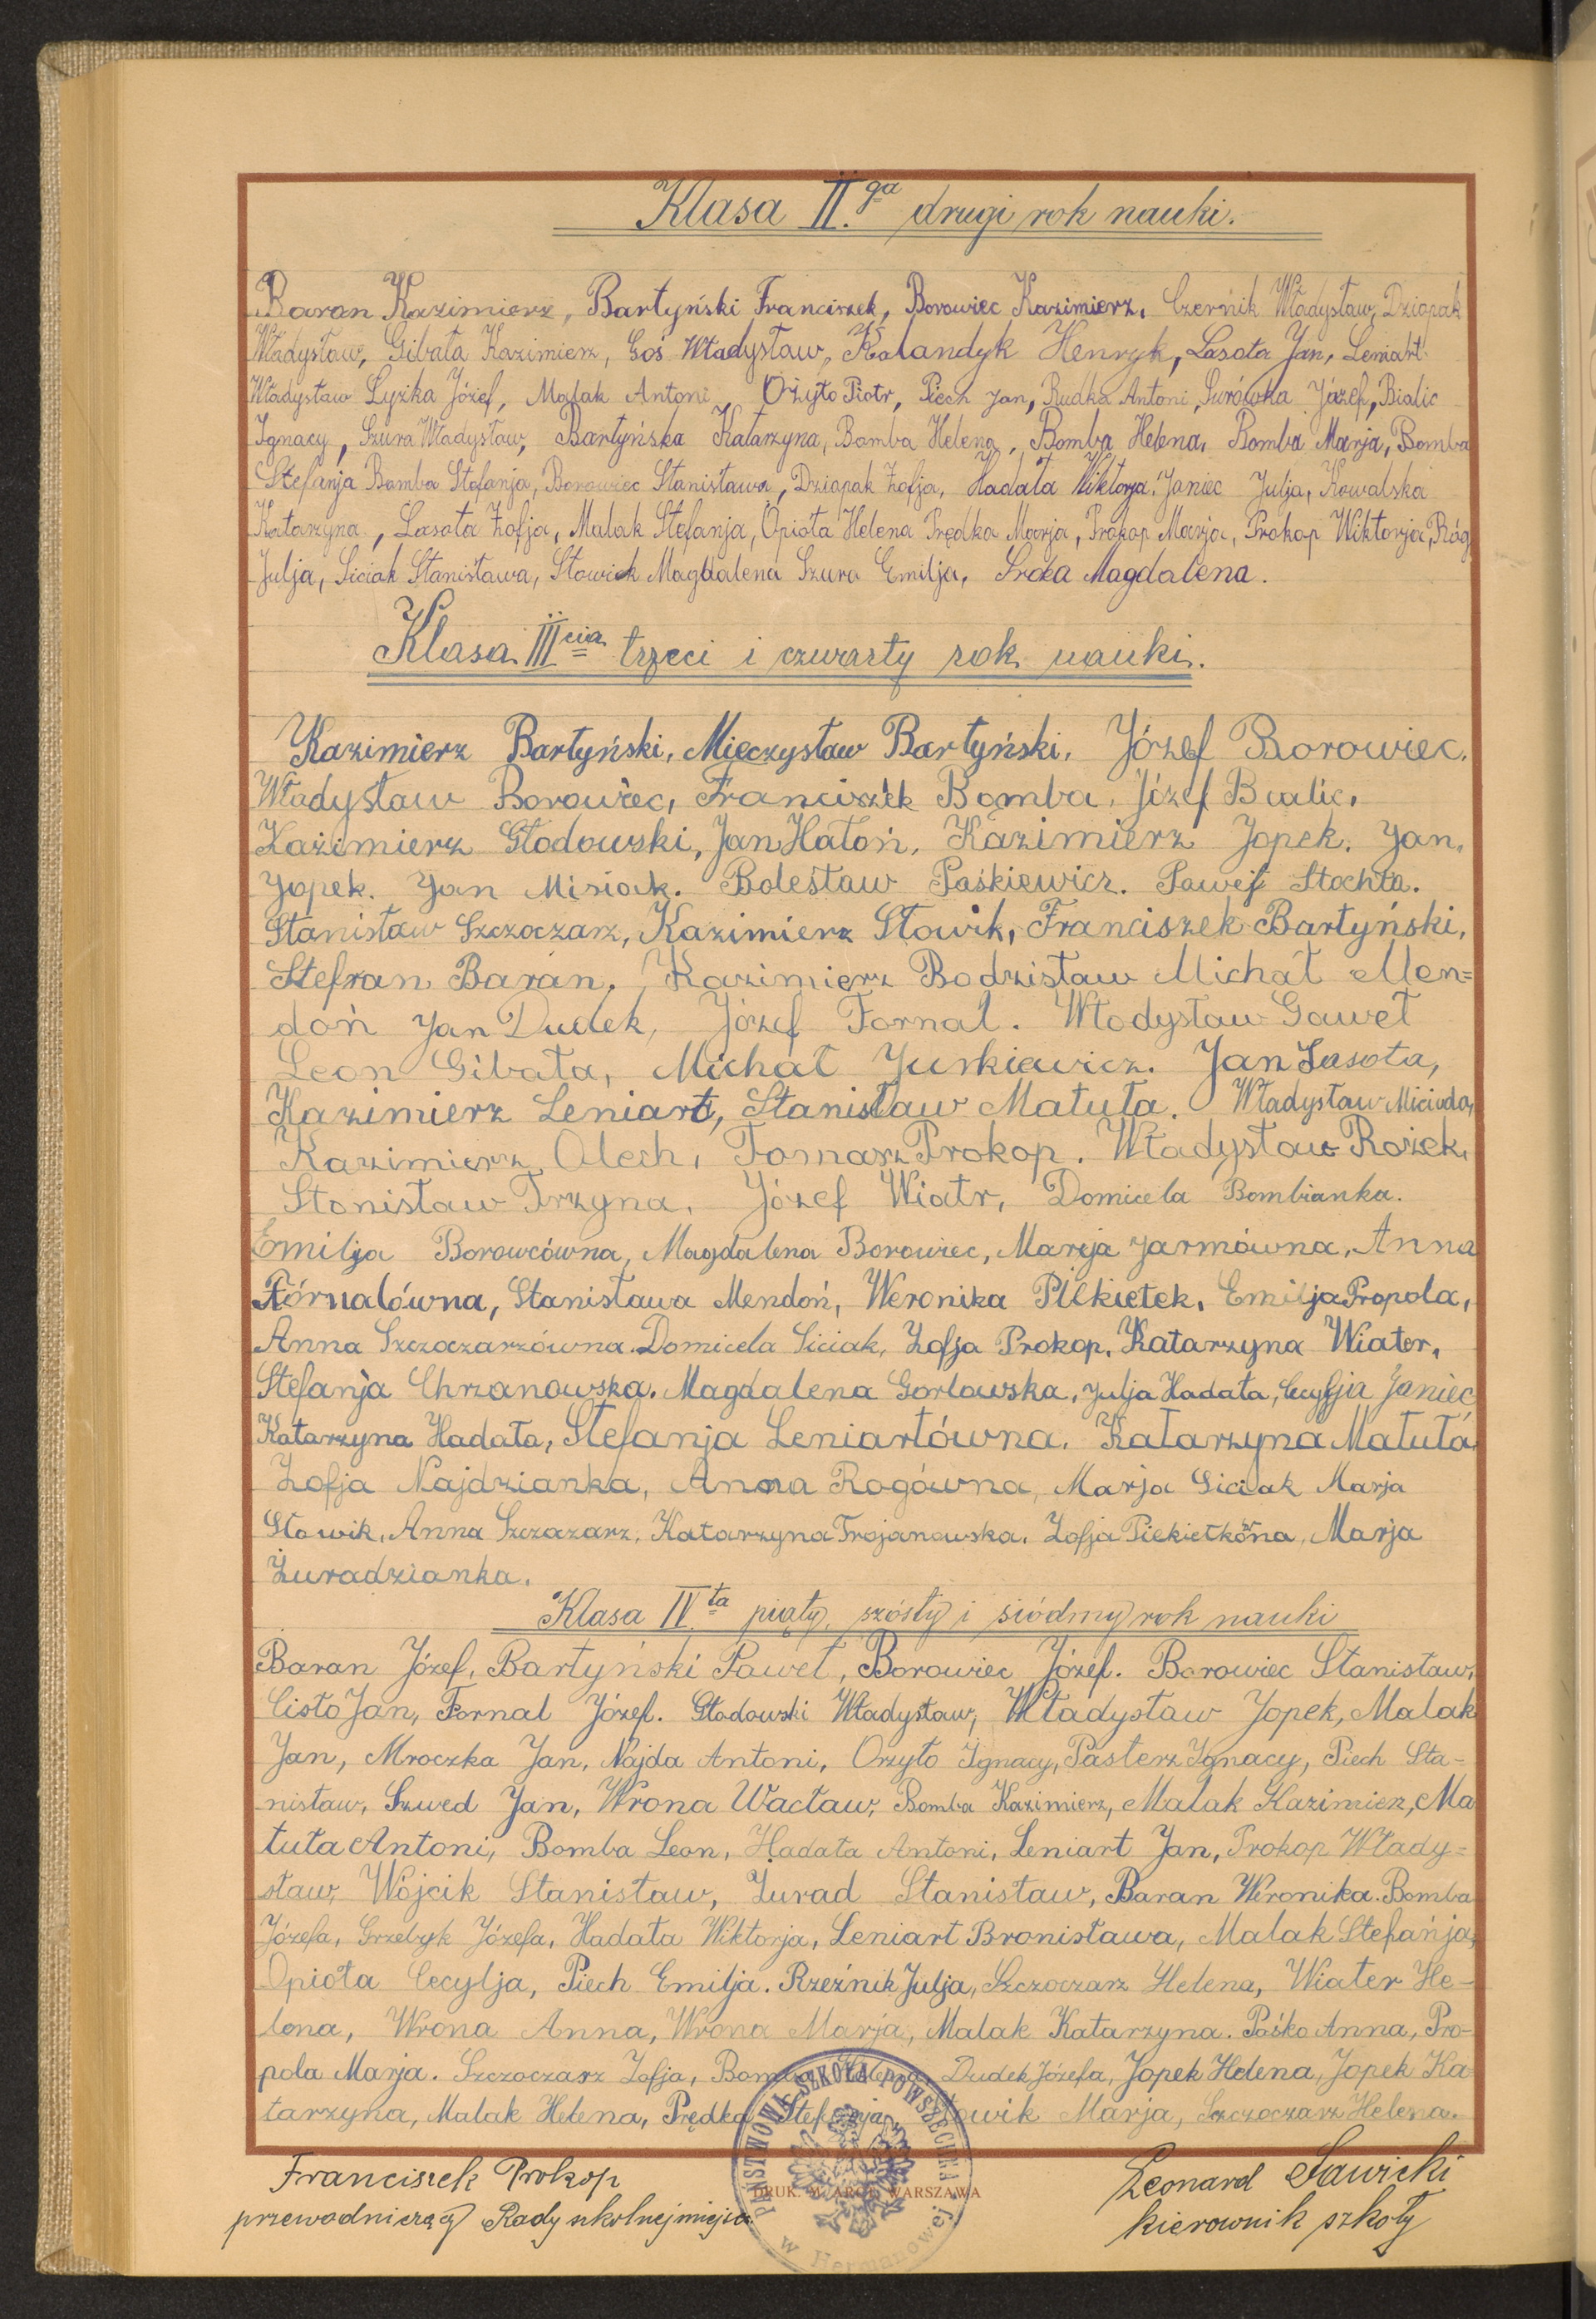 Klasa II.ga drugi rok nauki.
Baran Kazimierz, Bartyński Franciszek, Borowiec Kazimierz, Czernik Władysław, Dziopak
Władysław, Gibała Kazimierz, Goś Władysław, Kalandyk Henryk, Lasota Jan, Leniart
Władysław Łyzka Józef, Malak Antoni, Ożyło Piotr, Piech Jan, Rudka Antoni, Surówka Józef, Bialic
Ignacy, Szura Władysław, Bartyńska Katarzyna, Bomba Helena, Bomba Helena, Bomba Marja, Bomba
Stefanja Bomba Stefanja, Borowiec Stanisława, Dziopak Zofja, Hadała Wiktorja, Janiec Julja, Kowalska
Katarzyna, Lasota Zofja, Malak Stefanja, Opioła Helena Prędka Marja, Prokop Marja, Prokop Wiktorja, Róg
Julja, Siciak Stanisława, Słowick Magdalena Szura Emilja, Sroka Magdalena.
Klasa IIIcia trzeci i czwarty rok nauki.
Kazimierz Bartyński, Mieczysław Bartyński, Józef Borowiec,
Władysław Borowiec, Franciszek Bomba, Józef Bialic,
Kazimierz Głodowski, Jan Hałoń, Kazimierz Jopek, Jan,
Jopek. Jan Misiak. Bolesław Paśkiewicz. Paweł Stochła.
Stanisław Szczoczarz, Kazimierz Słowik, Franciszek Bartyński,
Stefran Baran, Kazimierz Bodzisław Michał Men=
doń Jan Dudek, Józef Fornal. Włodysław Gaweł
Leon Gibała, Michał Jurkiewicz. Jan Lasota,
Kazimierz Leniart, Stanisław Matuła. Władysław Miciuda,
Kazimierz Olech, Tomasz Prokop. Władysław Rożek,
Stonisław Trzyna, Józef Wiatr, Domicela Bombianka.
Emilja Borowcówna, Magdalena Borowiec, Marja Jarmówna, Anna
Fórnalówna, Stanisława Mendoń, Weronika Piekiełek, Emilja Propola,
Anna Szczoczarzówna. Domicela Siciak, Zofja Prokop, Katarzyna Wiater,
Stefanja Chrzanowska. Magdalena Gorlowska, Julja Hadała, Cecylja Janiec
Katarzyna Hadała, Stefanja Leniartówna. Katarzyna Matuła
Zofja Najdzianka, Anna Rogówna, Marja Siciak Marja
Słowik, Anna Szczazarz, Katarzyna Trojanowska, Zofja Piekiełkówna, Marja
Żuradzianka.
Klasa IVta piąty, szósty i siódmy rok nauki
Baran Józef, Bartyński Paweł, Borowiec Józef. Borowiec Stanisław,
Cisło Jan, Fornal Józef. Głodowski Władysław, Władysław Jopek, Malak
Jan, Mroczka Jan, Najda Antoni, Orzyło Ignacy, Pasterz Ignacy, Piech Sta=
nisław, Szwed Jan, Wrona Wacław, Bomba Kazimierz, Malak Kazimierz, Ma
tuła Antoni, Bomba Leon, Hadała Antoni, Leniart Jan, Prokop Włady=
sław, Wójcik Stanisław, Żurad Stanisław, Baran Weronika. Bomba
Józefa, Grzebyk Józefa, Hadała Wiktorja, Leniart Bronisława, Malak Stefanja,
Opioła Cecylja, Piech Emilja. Rzeźnik Julja, Szczoczarz Helena, Wiater He-
lena, Wrona Anna, Wrona Marja, Malak Katarzyna. Paśko Anna, Pro-
pola Marja. Szczoczarz Zofja, Bomba Helena Dudek Józefa, Jopek Helena, Jopek Ka
tarzyna, Malak Helena, Prędka Stefanja, Słowik Marja, Szczoczarz Helena.
Franciszek Prokop
przewodniczący Rady szkolnej miejsc.
PAŃSTWOWA SZKOŁA POWSZECHNA
w Hermanowej
DRUK. M. ARCT, WARSZAWA
Leonard Sawicki
kierownik szkoły